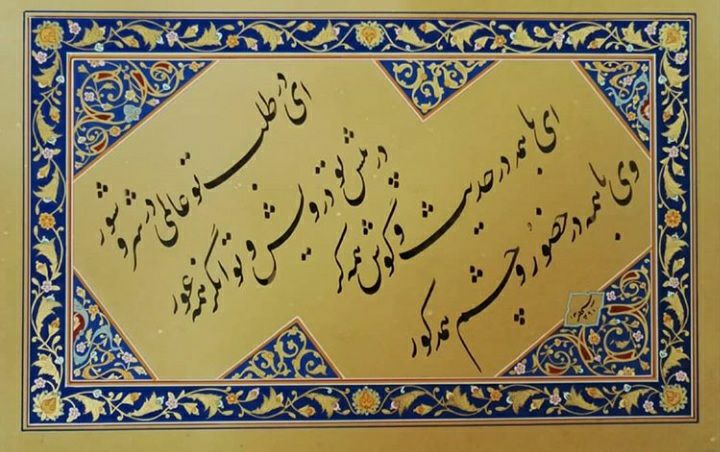 ای در طلب تو عالمی در شر و شور
در پیش تو درویش و توانگر همه عور
ای با همه در حدیث و گوش همه کر
وی با همه در حضور و چشم همه کور